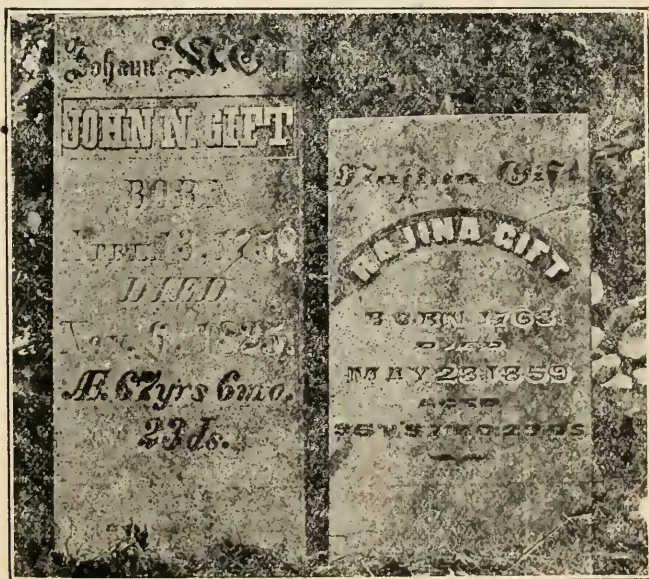 Johann
JOHN N. GIFT
BORN
APRL. 13. 1758
DIED
Nov. 6. 1825.
Æ. 67yrs 6mo.
23 ds.
Rajina Gift
RAJINA GIFT
BORN 1763.
DIED
MAY 23 1859.
AGED